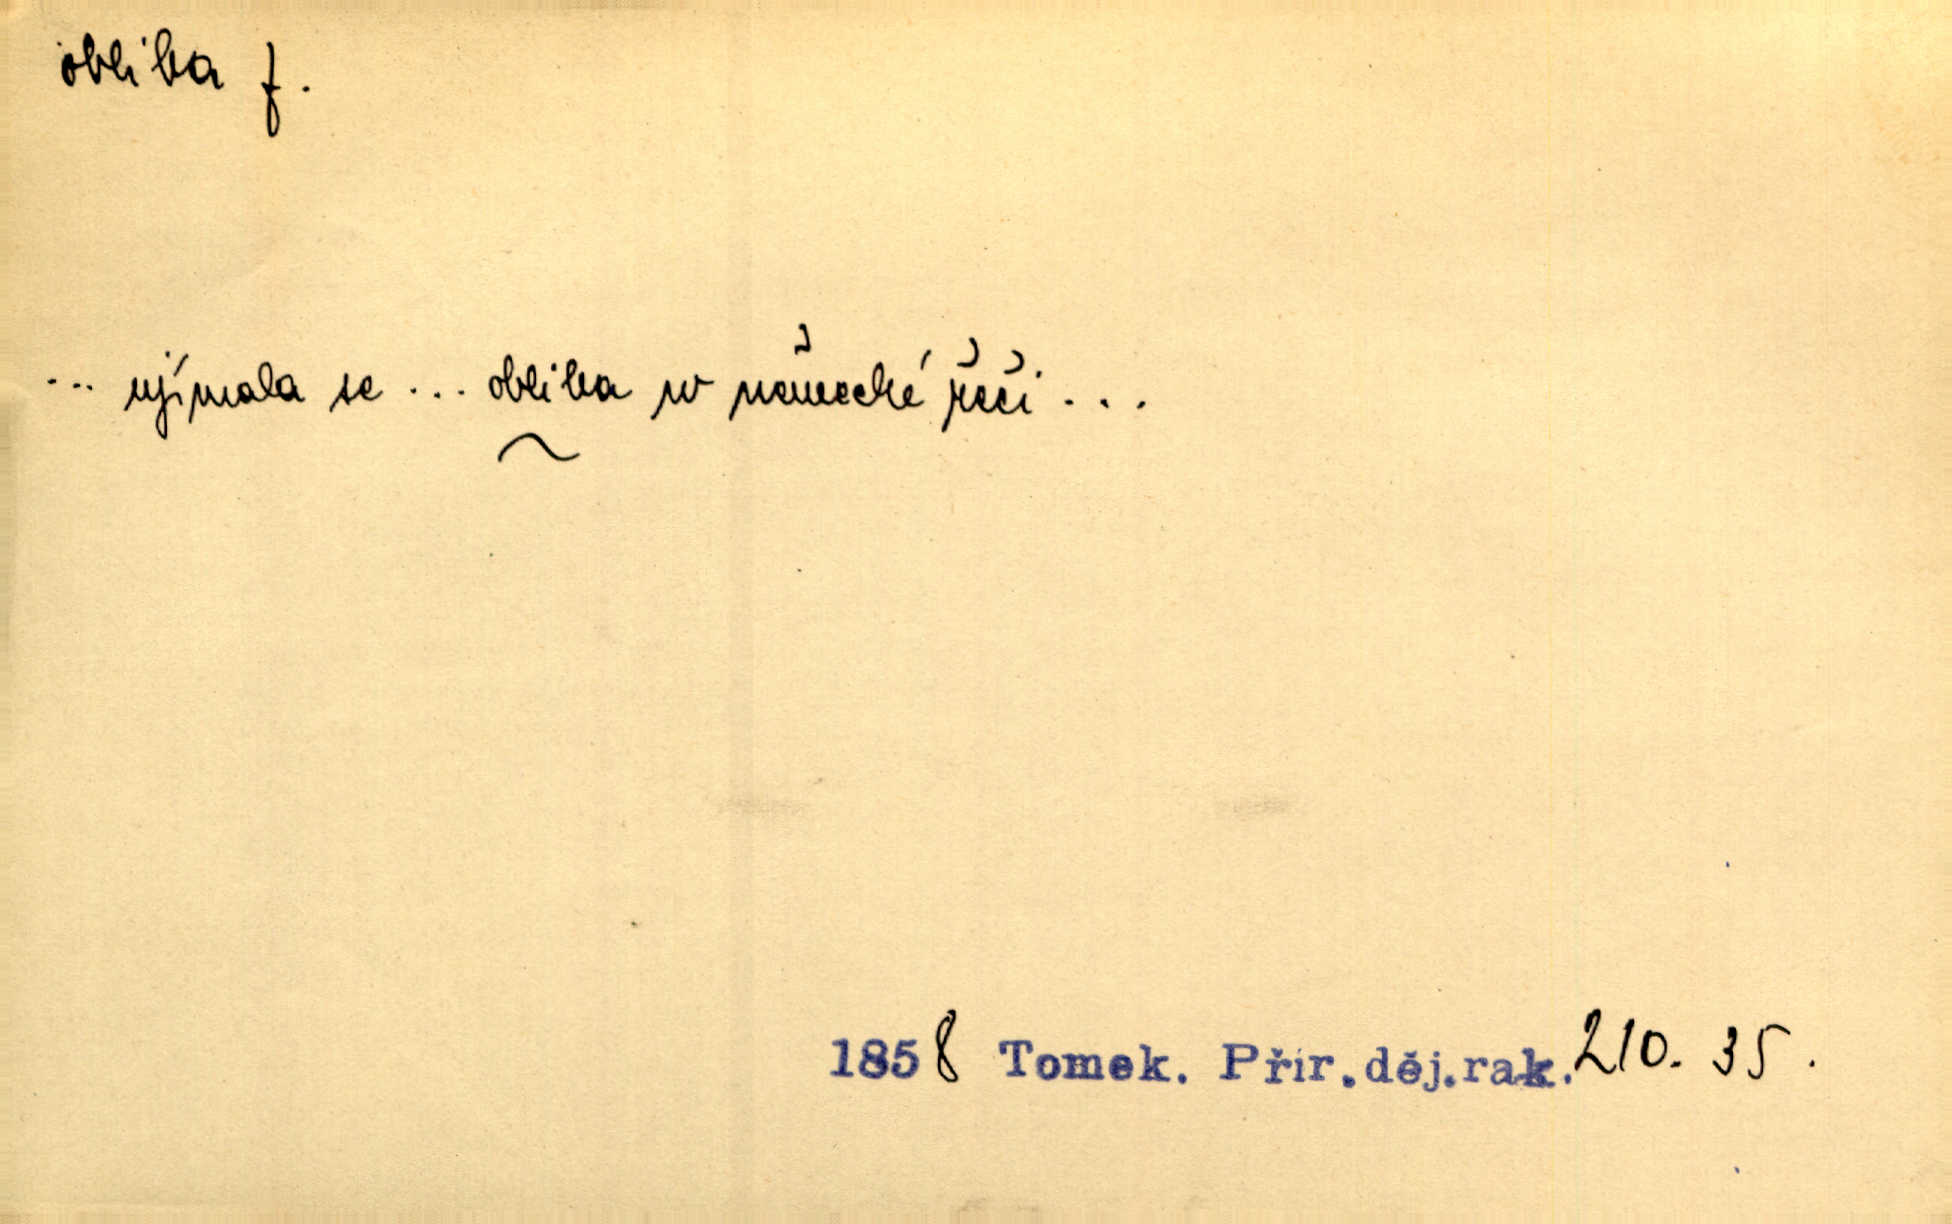 obliba f.
... ujímala se ... obliba w německé řeči ...
1858 Tomek. Přír.děj.rak. 210. 35.